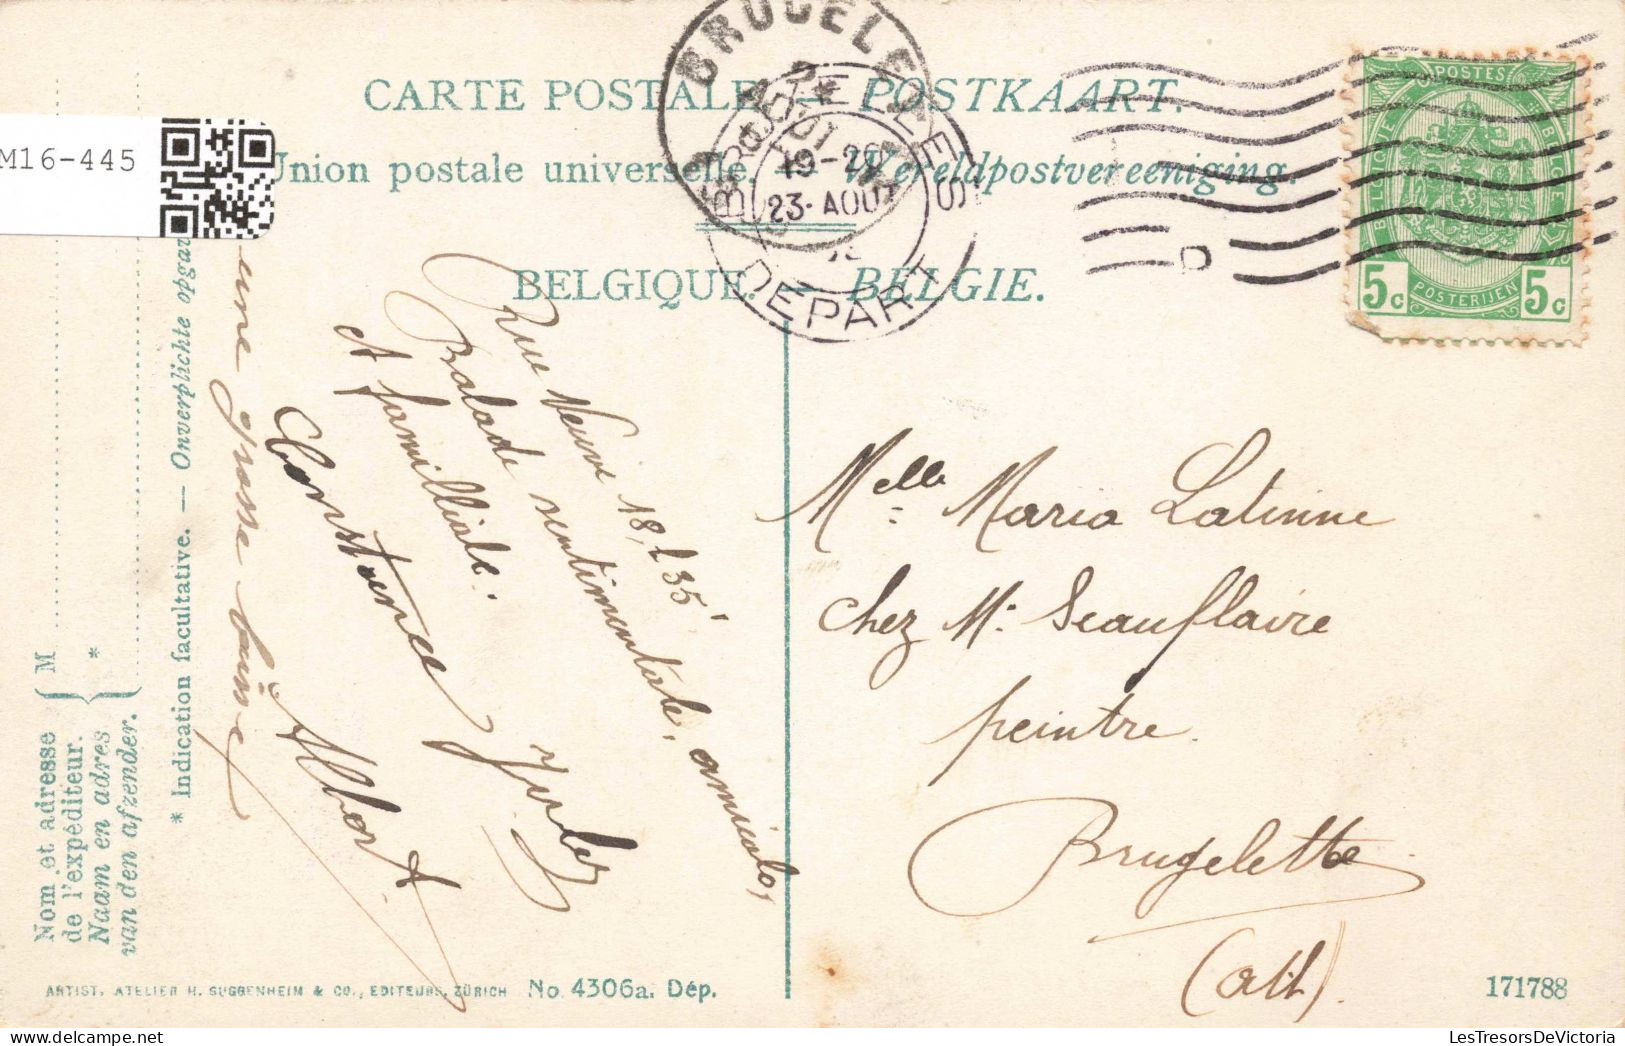 CARTE POSTALE — POSTKAART.
Union postale universelle. — Wereldpostvereeniging.
BELGIQUE. — BELGIE.
M16-445
BRUGELETTE
BRUXELLES
19-20
23·AOU
DEPART
POSTES
BELGIQUE
BELGIE
POSTERIJEN
5c
5c
Rue Neuve 18, 235'
Balade sentimentale, amicale,
et familliale.
Constance Jules
Albert
une grosse baise
Melle Maria Latinne
chez Mr Beauflaire
peintre.
Brugelette
(Ath).
Nom et adresse
de l'expéditeur.
Naam en adres
van den afzender.
M
*
* Indication facultative. — Onverplichte opgav
ARTIST. ATELIER H. GUGGENHEIM & CO., EDITEURS, ZÜRICH No. 4306a. Dép.
171788
LesTresorsDeVictoria